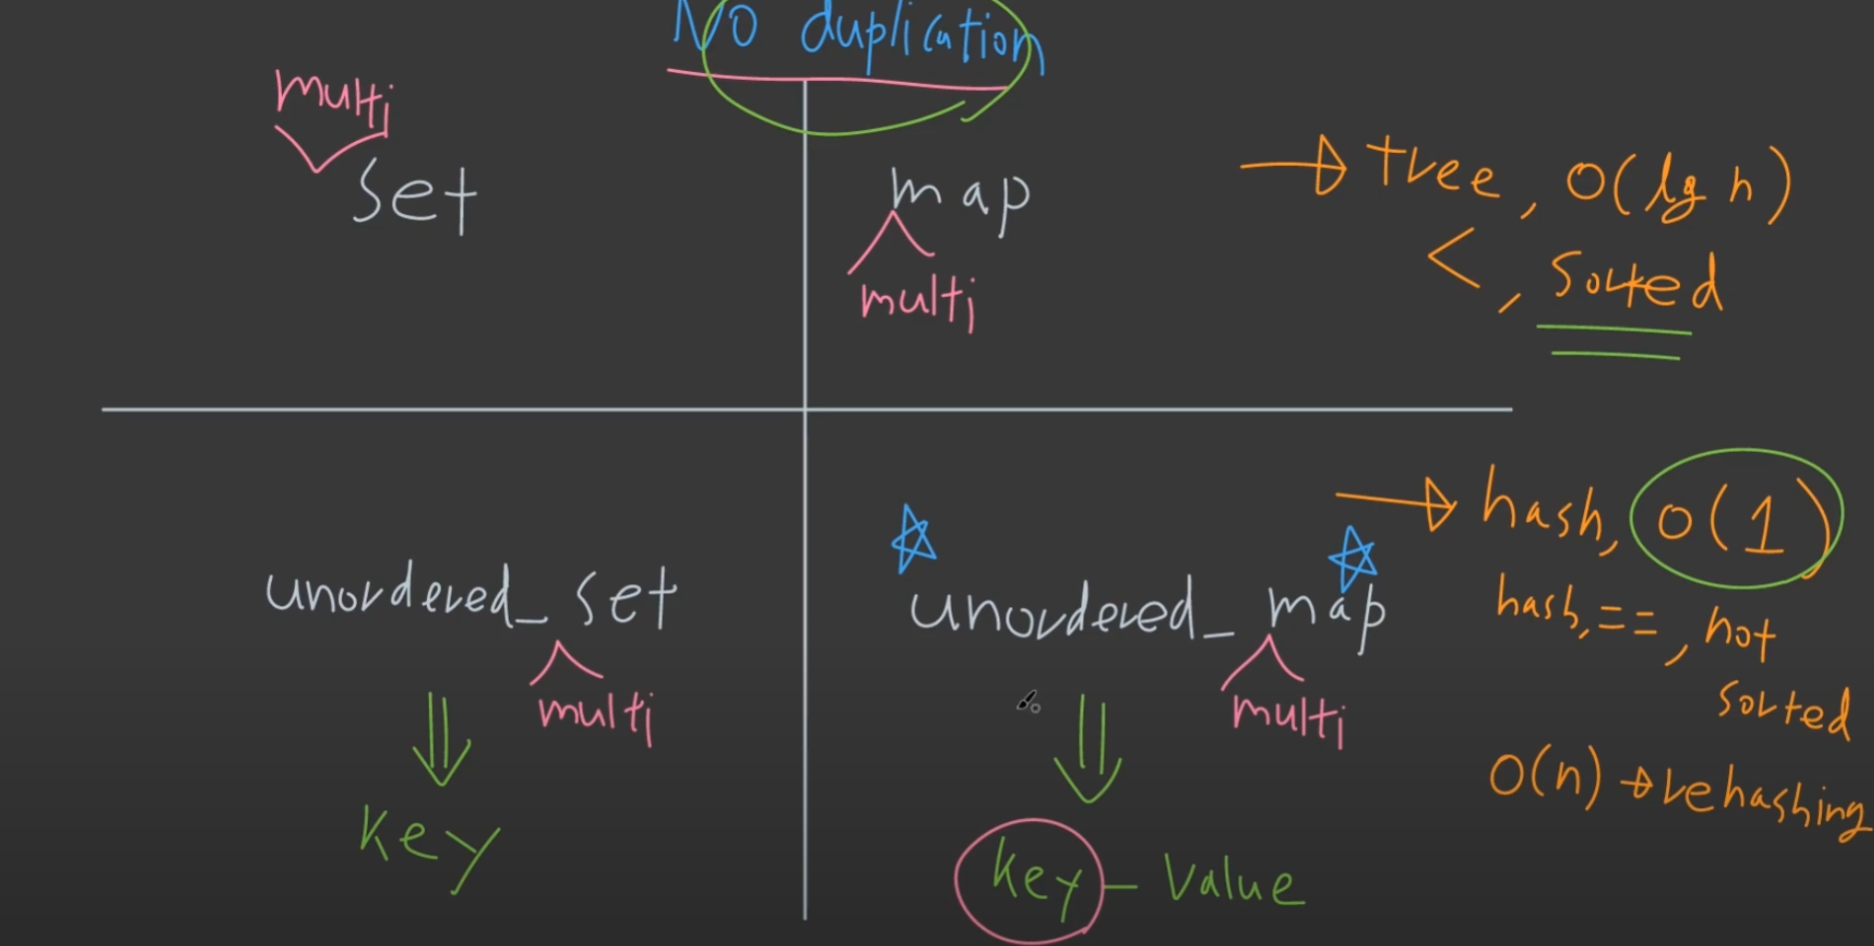 No duplication
multi
set
map
multi
tree, O(lg n)
<, sorted
unordered_set
multi
key
unordered_map
multi
key - value
hash, O(1)
hash, ==, not
sorted
O(n) → rehashing